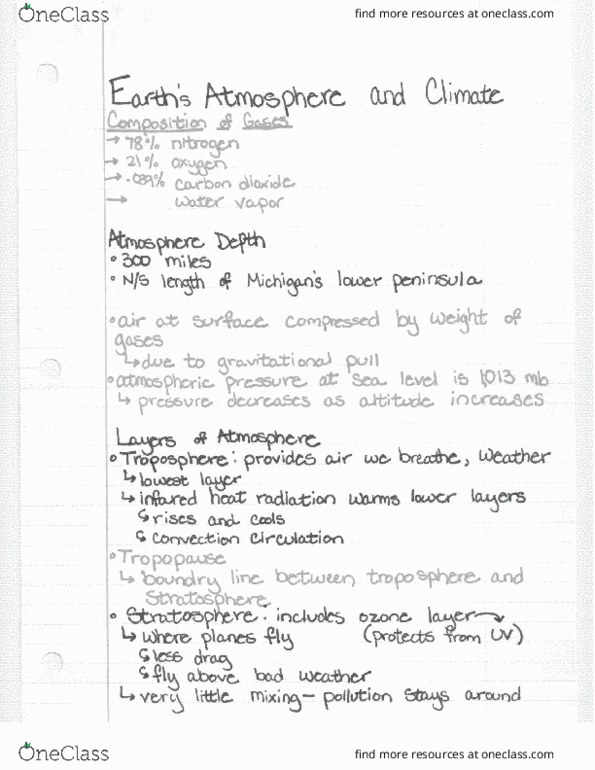 OneClass
find more resources at oneclass.com
Earth's Atmosphere and Climate
Composition of Gases
→ 78% nitrogen
→ 21% oxygen
→ .039% carbon dioxide
→ water vapor
Atmosphere Depth
• 300 miles
• N/S length of Michigan's lower peninsula
• air at surface compressed by weight of
gases
↳ due to gravitational pull
• atmospheric pressure at sea level is 1,013 mb
↳ pressure decreases as altitude increases
Layers of Atmosphere
• Troposphere: provides air we breathe, weather
↳ lowest layer
↳ infared heat radiation warms lower layers
↳ rises and cools
↳ convection circulation
• Tropopause
↳ boundry line between troposphere and
Stratosphere
• Stratosphere: includes ozone layer
↳ where planes fly (protects from UV)
↳ less drag
↳ fly above bad weather
↳ very little mixing - pollution stays around
OneClass
find more resources at oneclass.com